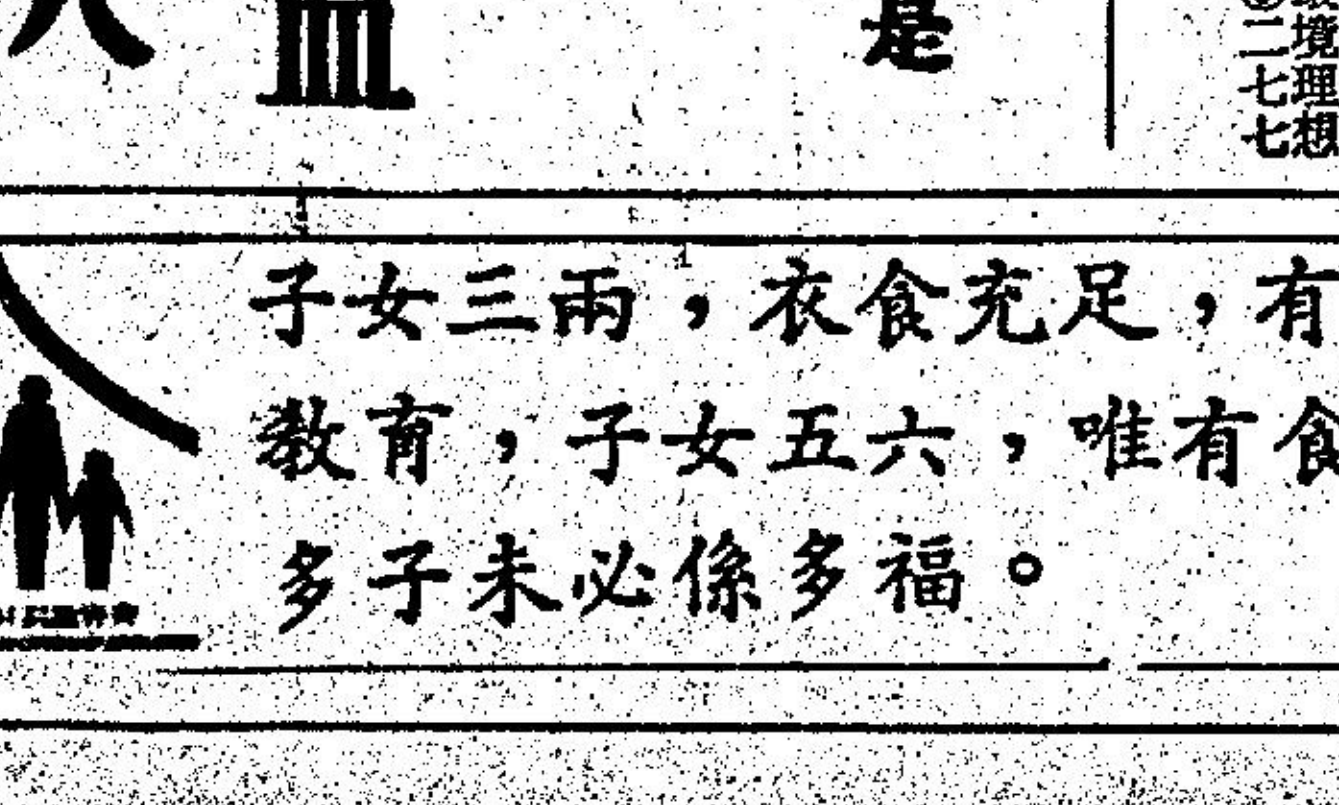 是
境理想
二七七
子女三兩，衣食充足，有
教育，子女五六，唯有食
多子未必係多福。